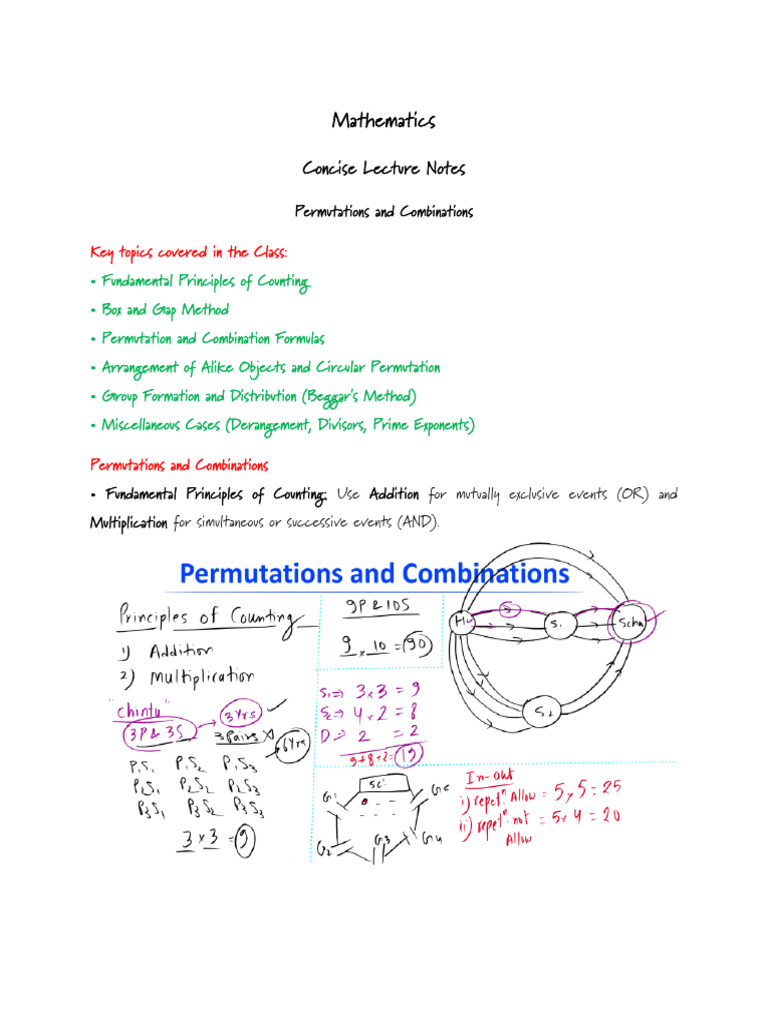 Mathematics
Concise Lecture Notes
Permutations and Combinations
Key topics covered in the Class:
• Fundamental Principles of Counting
• Box and Gap Method
• Permutation and Combination Formulas
• Arrangement of Alike Objects and Circular Permutation
• Group Formation and Distribution (Beggar's Method)
• Miscellaneous Cases (Derangement, Divisors, Prime Exponents)
Permutations and Combinations
• Fundamental Principles of Counting: Use Addition for mutually exclusive events (OR) and
Multiplication for simultaneous or successive events (AND).
Permutations and Combinations
Principles of Counting
1) Addition
2) Multiplication
"Chintu"
3P & 3S → 3Yrs
3 Pairs → 6Yrs
P₁S₁ P₁S₂ P₁S₃
P₂S₁ P₂S₂ P₂S₃
P₃S₁ P₃S₂ P₃S₃
3 × 3 = 9
9P & 10S
9 × 10 = 90
S₁ ⇒ 3 × 3 = 9
S₂ ⇒ 4 × 2 = 8
D ⇒ 2 = 2
9+8+2 = 19
S₁
S₂
G₁
G₂
G₃
G₄
G₅
In-out
i) repetⁿ Allow = 5 × 5 = 25
ii) repetⁿ not = 5 × 4 = 20
Allow